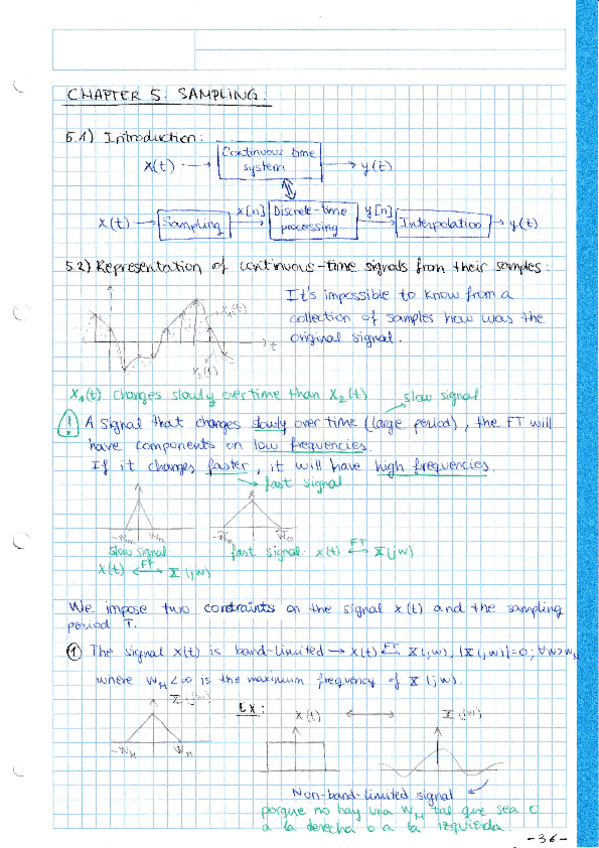 CHAPTER 5: SAMPLING.
5.1) Introduction:
x(t) → Continuous time system → y(t)
x(t) → Sampling x[n] → Discrete-time processing y[n] → Interpolation → y(t)
5.2) Representation of continuous-time signals from their samples:
It's impossible to know from a
collection of samples how was the
original signal.
x₁(t)
t
x₂(t)
x₁(t) changes slowly over time than x₂(t) slow signal
! A signal that changes slowly over time (large period), the FT will
have components on low frequencies.
If it changes faster, it will have high frequencies.
fast signal
-Wm Wm -Wm Wm
slow signal fast signal x(t) FT X(jw)
x(t) FT X(jw)
We impose two constraints on the signal x(t) and the sampling
period T.
① The signal x(t) is band-limited → x(t) FT X(jw), |X(jw)|=0; ∀w>w_M
where w_M<∞ is the maximum frequency of X(jw).
X(jw)
EX: x(t) ↔ X(jw)
-W_M W_M
Non-band-limited signal
porque no hay una W_M tal que sea 0
a la derecha o a la izquierda.
-36-